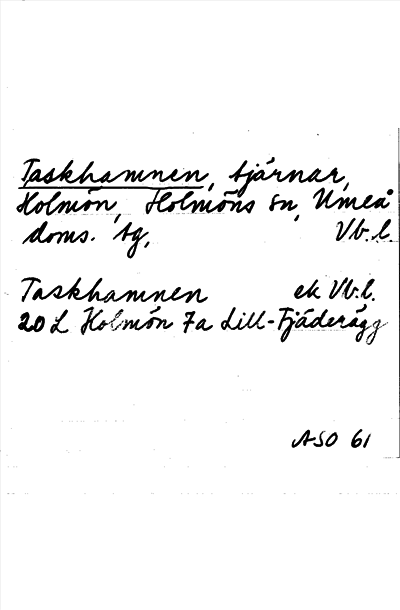 Taskhamnen, tjärnar,
Holmön, Holmöns sn, Umeå
doms. tg, Vb.l.
Taskhamnen ek Vb.l.
20 L Holmön 7a Lill-Fjäderägg
ASO 61